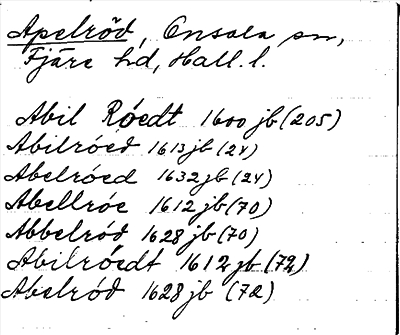 Apelröd, Onsala sn,
Fjäre hd, Hall. l.
Abil Róedt 1600 jb (205)
Abilróed 1613 jb (24)
Abelróed 1632 jb (24)
Abellróe 1612 jb (70)
Abbelród 1628 jb (70)
Abilróedt 1612 jb (72)
Abelród 1628 jb (72)